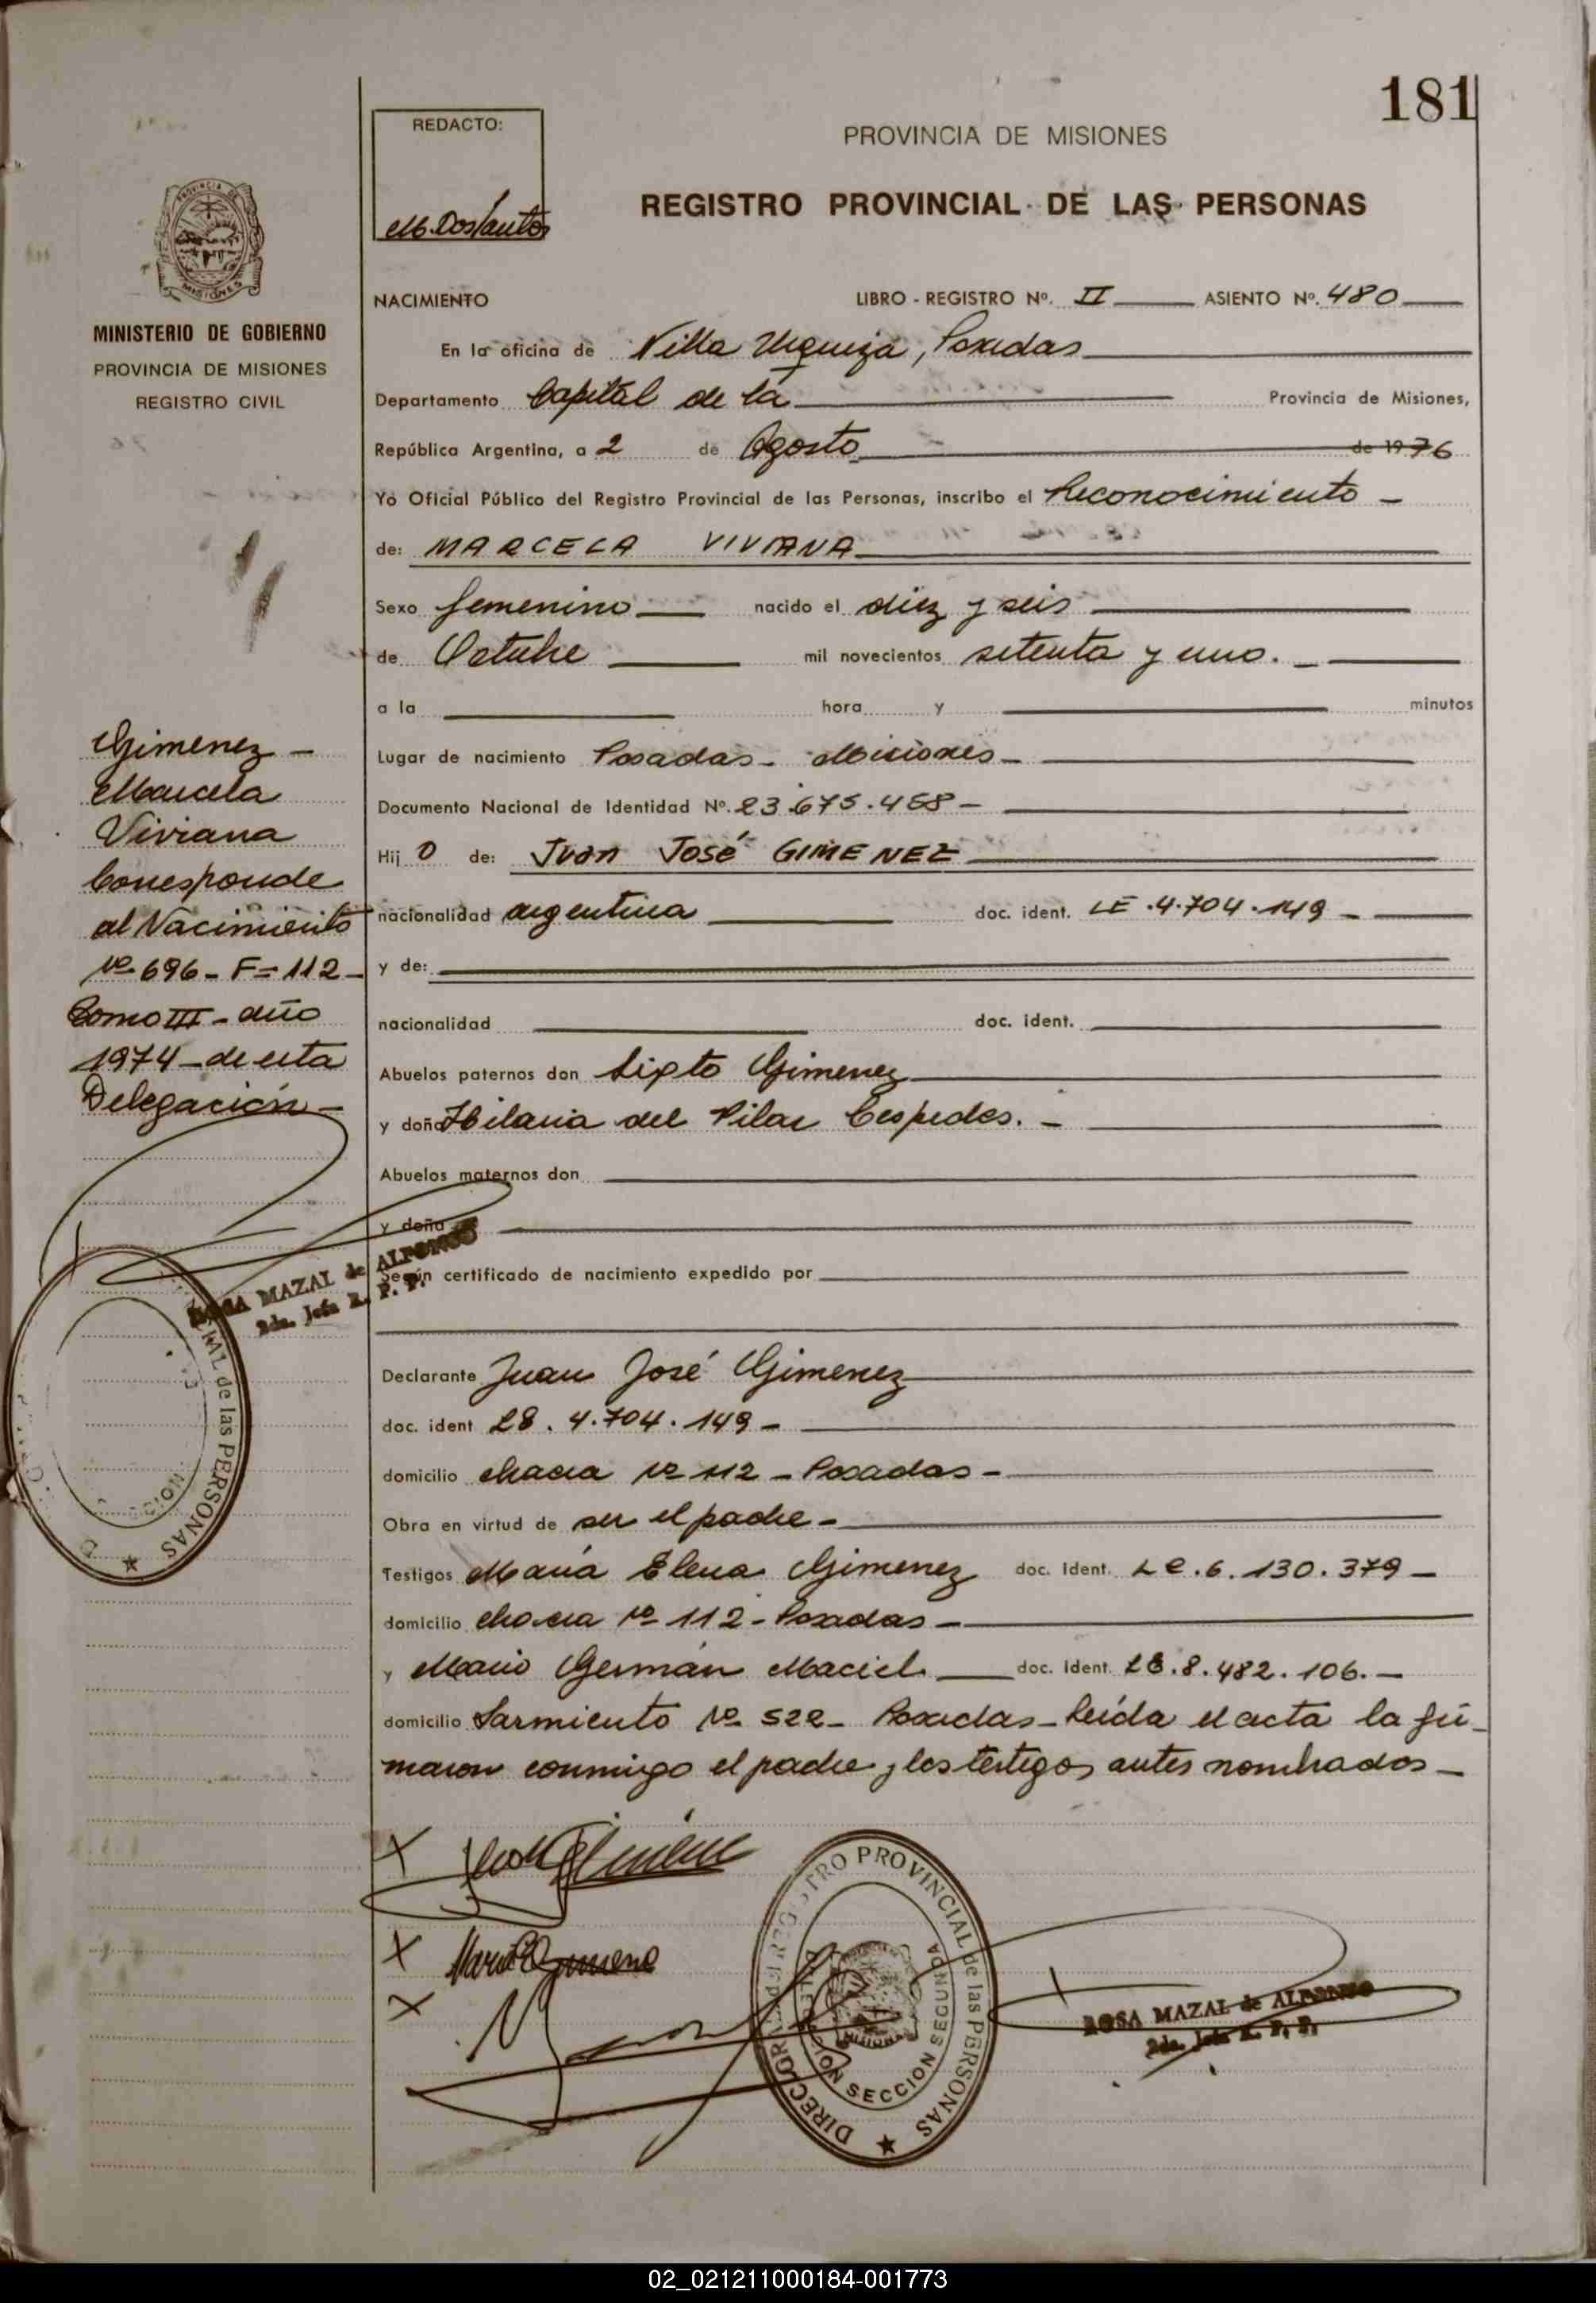 181
REDACTO:
M. Dos Santos
PROVINCIA DE MISIONES
REGISTRO PROVINCIAL DE LAS PERSONAS
PROVINCIA DE
MISIONES
MINISTERIO DE GOBIERNO
PROVINCIA DE MISIONES
REGISTRO CIVIL
NACIMIENTO LIBRO - REGISTRO Nº. II ASIENTO Nº. 480
En la oficina de Villa Urquiza, Posadas
Departamento Capital de la Provincia de Misiones,
República Argentina, a 2 de Agosto de 1976
Yo Oficial Público del Registro Provincial de las Personas, inscribo el Reconocimiento -
de: MARCELA VIVIANA
Sexo femenino nacido el diez y seis
de Octubre mil novecientos setenta y uno. -
a la hora y minutos
Lugar de nacimiento Posadas - Misiones -
Documento Nacional de Identidad Nº. 23.675.458 -
Hij o de: Juan José GIMENEZ
nacionalidad argentina doc. ident. LE .4.704.149 -
y de:
nacionalidad doc. ident.
Abuelos paternos don Sixto Gimenez
y doña Hilaria del Pilar Cespedes. -
Abuelos maternos don
y doña
Según certificado de nacimiento expedido por
Declarante Juan José Gimenez
doc. ident LE. 4.704.149 -
domicilio chacra Nº 112 - Posadas -
Obra en virtud de ser el padre -
Testigos María Elena Gimenez doc. ident. LC. 6.130.379 -
domicilio chacra Nº 112 - Posadas -
y Mario Germán Maciel. doc. ident. LE. 8.482.106. -
domicilio Sarmiento Nº 522 - Posadas - Leída el acta la fir-
maron conmigo el padre y los testigos antes nombrados -
Gimenez -
Marcela
Viviana
Corresponde
al Nacimiento
Nº 696 - F= 112 -
Tomo III - año
1974 - de esta
Delegación -
ROSA MAZAL de ALFONSO
2da. Jefa R. P. P.
de las PERSONAS
X
X
X
REGISTRO PROVINCIAL de las PERSONAS
SECCION SEGUNDA
MISIONES
ROSA MAZAL de ALFONSO
2da. Jefa R. P. P.
02_021211000184-001773